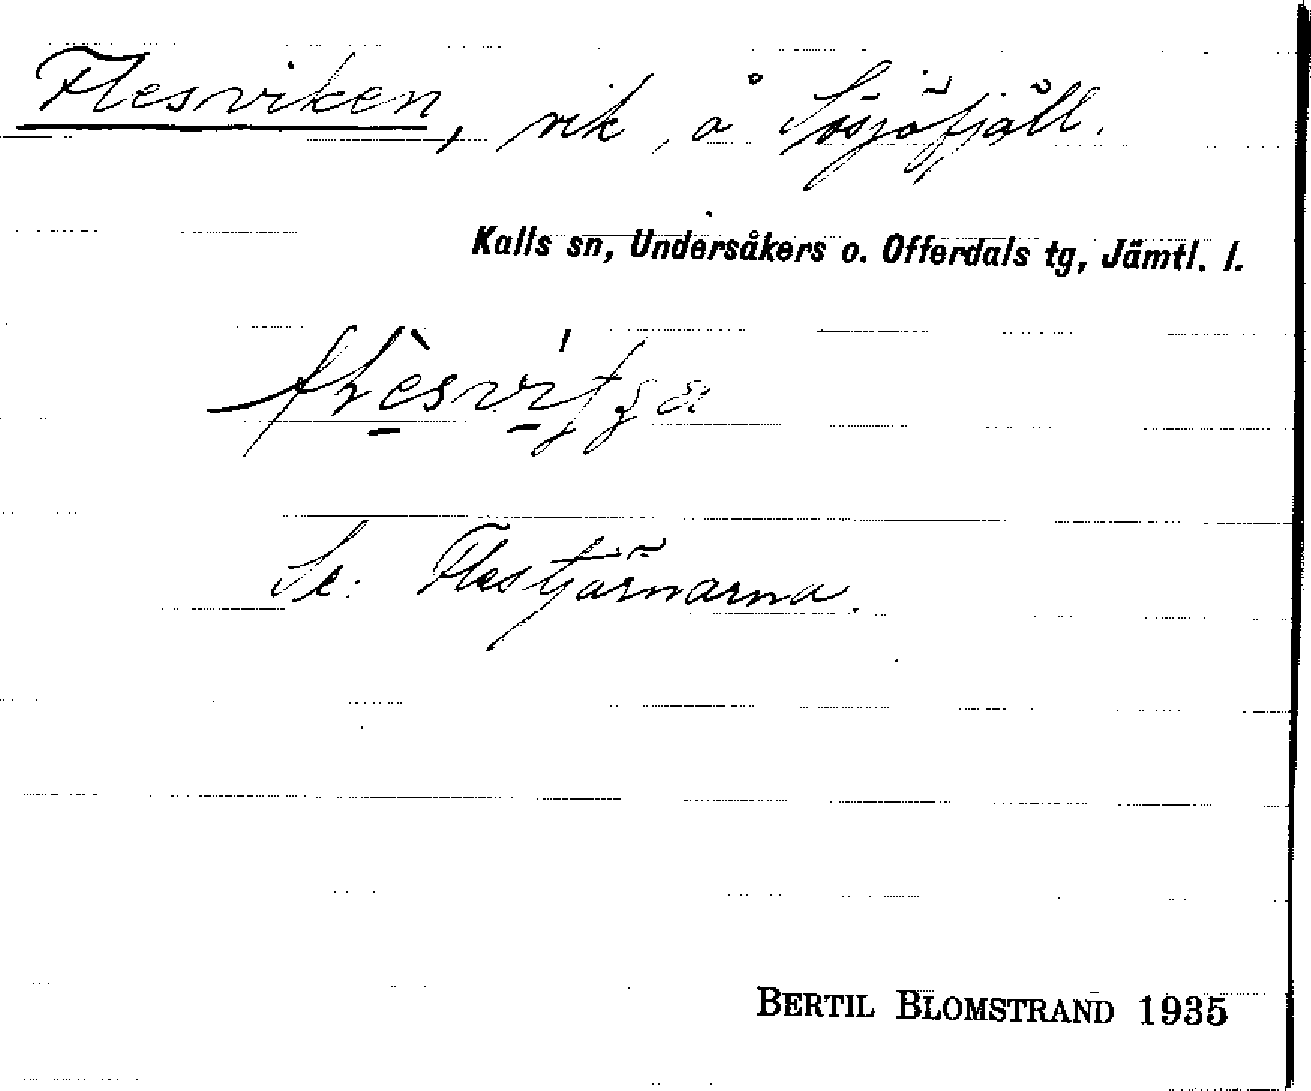 Flesviken, vik, å Sösjöfjäll.
Kalls sn, Undersåkers o. Offerdals tg, Jämtl. l.
Se: Flestjärnarna.
BERTIL BLOMSTRAND 1935